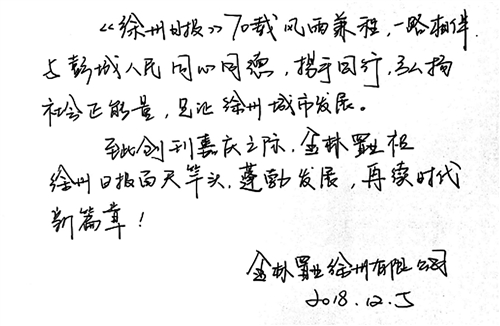 《徐州日报》70载风雨兼程，一路相伴
与彭城人民同心同德，携手同行，弘扬
社会正能量，见证徐州城市发展。
至此创刊嘉庆之际，金林置业祝
徐州日报百尺竿头，蓬勃发展，再续时代
新篇章！
金林置业徐州有限公司
2018.12.5